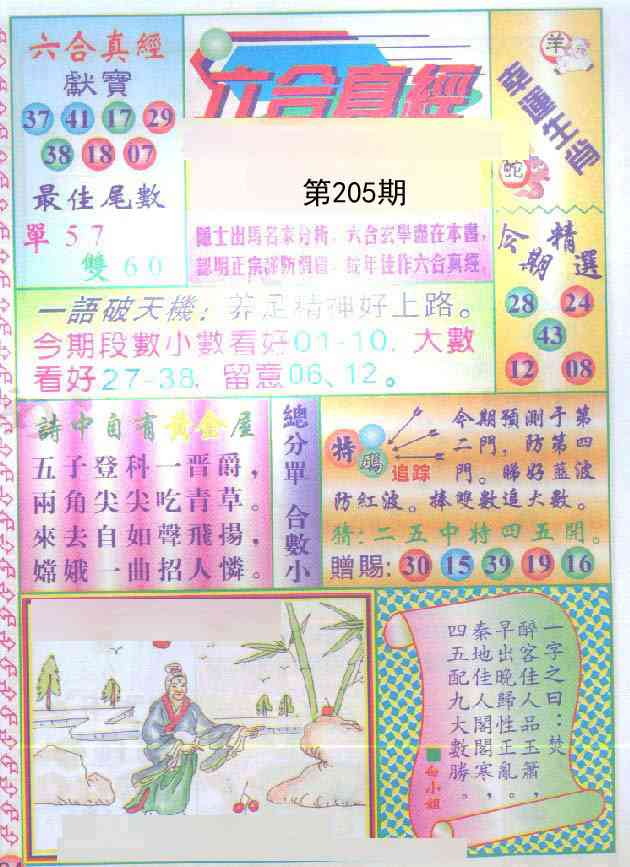 六合真經
獻寶
37 41 17 29
38 18 07
最佳尾數
單 5 7
雙 6 0
六合真經
第205期
隱士出馬名家分析，六合玄學盡在本書，
認明正宗謹防假冒，蛇年佳作六合真經。
羊
幸運生肖
蛇
今期精選
28 24
43
12 08
一語破天機：養足精神好上路。
今期段數小數看好01-10．大數
看好27-38．留意06、12。
詩中自有黃金屋
五子登科一晋爵，
兩角尖尖吃青草。
來去自如聲飛揚，
嫦娥一曲招人憐。
總分單 合數小
特碼
追踪
今期預測于第
二門，防第四
門。睇好藍波
防紅波。棒雙數追大數。
猜：二五中特四五開。
贈賜：30 15 39 19 16
一字之曰：焚
醉客佳人品玉簫，
早出晚歸性正亂。
秦地佳人閣閣寒，
四五配九大數勝。
白小姐